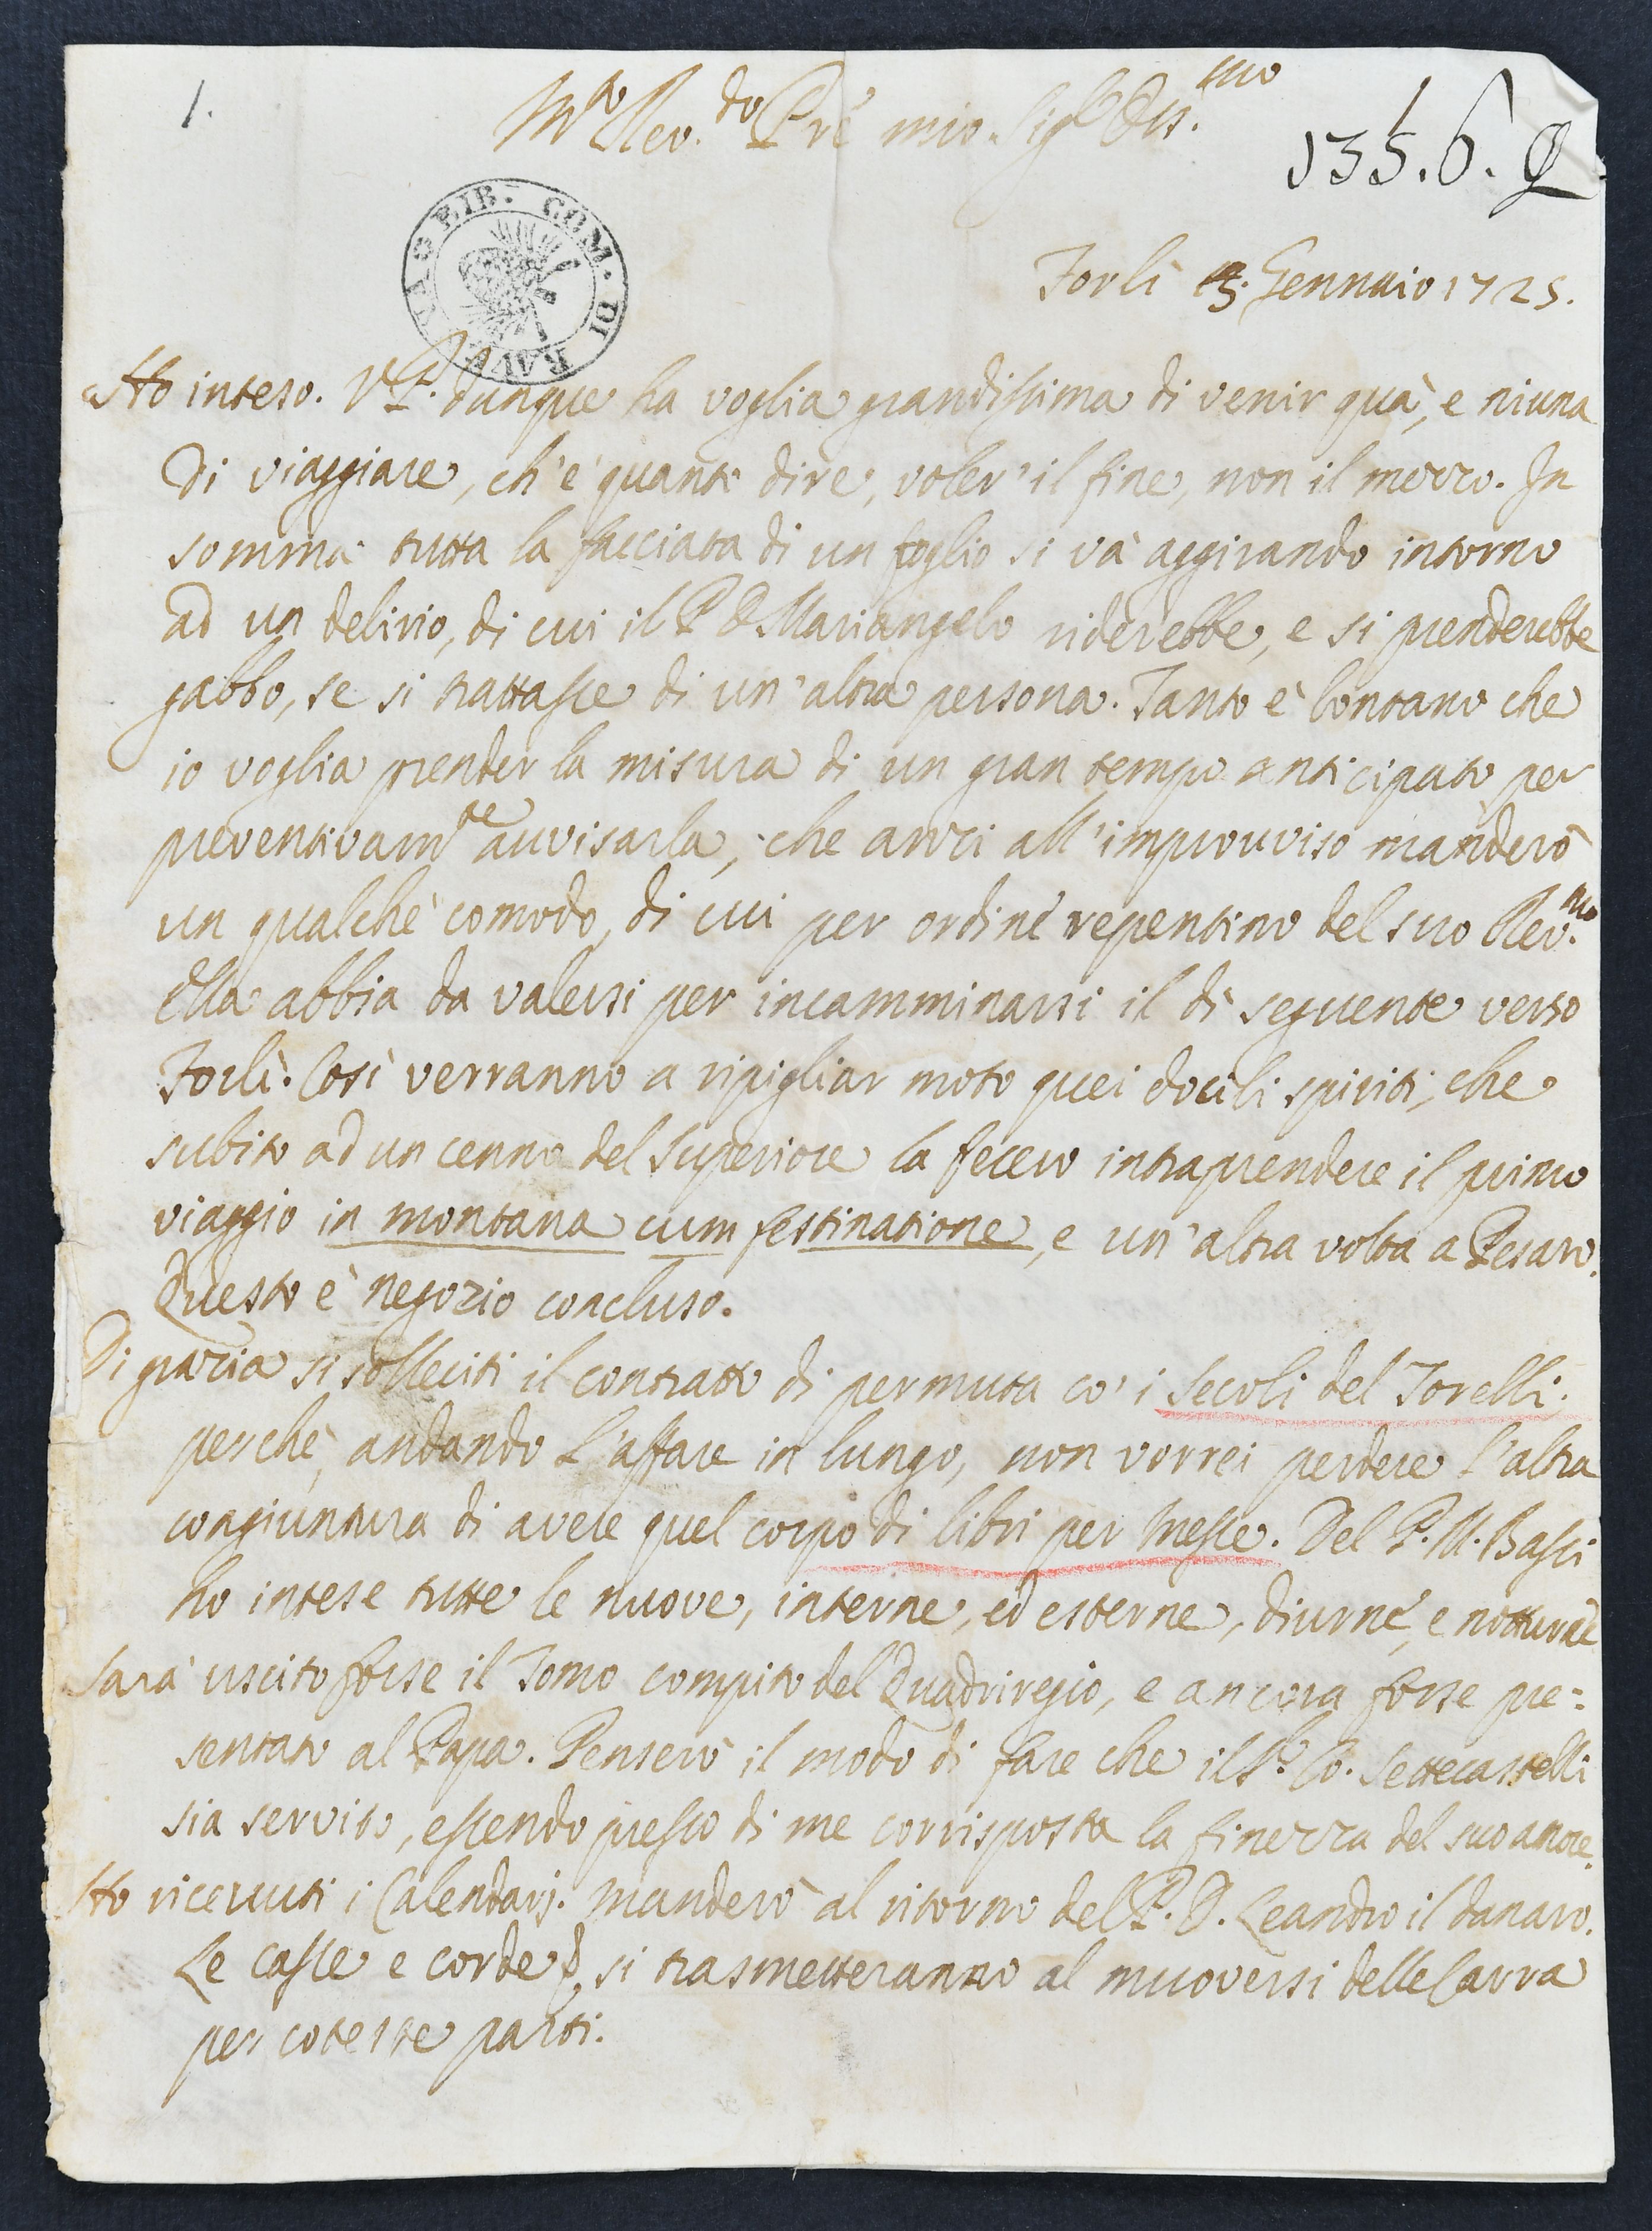 1.
M.to Rev.do P're mio Sig.r Oss.mo
135.6.Q
BIB. COM. DI RAVENNA
Forlì 13. Gennaio 1725.
Ho inteso. V.P. dunque ha voglia grandissima di venir quà, e niuna
di viaggiare, ch'è quanto dire, voler' il fine, non il mezzo. In
somma tutta la facciata di un foglio si và aggirando intorno
ad un delirio, di cui il P. D. Mariangelo riderebbe, e si prenderebbe
gabbo, se si trattasse di un'altra persona. Tanto è lontano che
io voglia prender la misura di un gran tempo anticipato per
preventivam.te avvisarla, che anzi all'improvviso manderò
un qualche comodo, di cui per ordine repentino del suo Rev.mo
Ella abbia da valersi per incamminarsi il dì seguente verso
Forlì. Così verranno a ripigliar moto quei docili spiriti, che
subito ad un cenno del Superiore la fecero intraprendere il primo
viaggio in montana cum festinatione, e un'altra volta a Pesaro.
Questo è negozio concluso.
Di grazia si solleciti il contratto di permuta co' i Secoli del Torelli:
perchè, andando l'affare in lungo, non vorrei perdere l'altra
congiuntura di avere quel corpo di libri per Messe. Del P. M. Bassi
ho intese tutte le nuove, interne, ed esterne, diurne, e notturne
Sarà uscito forse il Tomo compito del Quadriregio, e ancora forse pre=
sentato al Papa. Penserò il modo di fare che il S.r Co. Settecastelli
sia servito, essendo presso di me corrisposta la finezza del suo amore.
Ho ricevuti i Calendarj. Manderò al ritorno del P. D. Leandro il danaro.
Le casse e corde si trasmetteranno al muoversi delle Carra
per coteste parti.